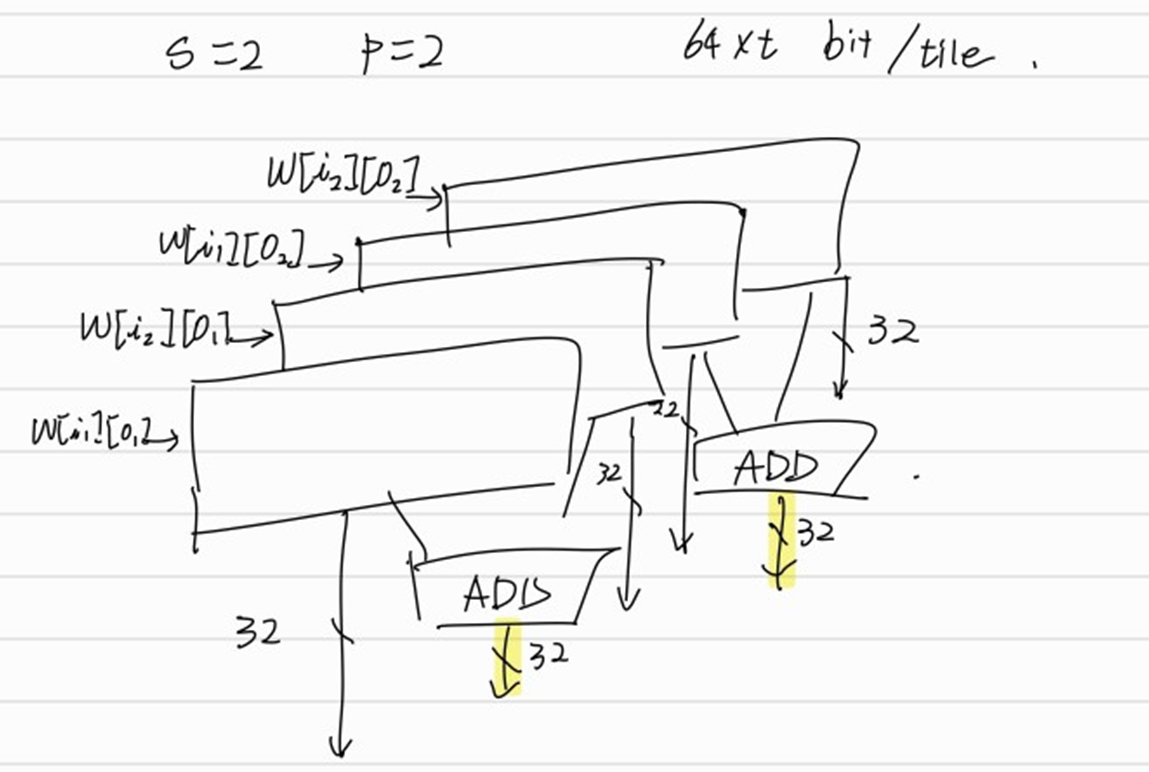 S=2 P=2 64xt bit/tile.
W[i₂][O₂]
W[i₁][O₂]
W[i₂][O₁]
W[i₁][O₁]
32
22
32
ADD
32
ADD
32
32